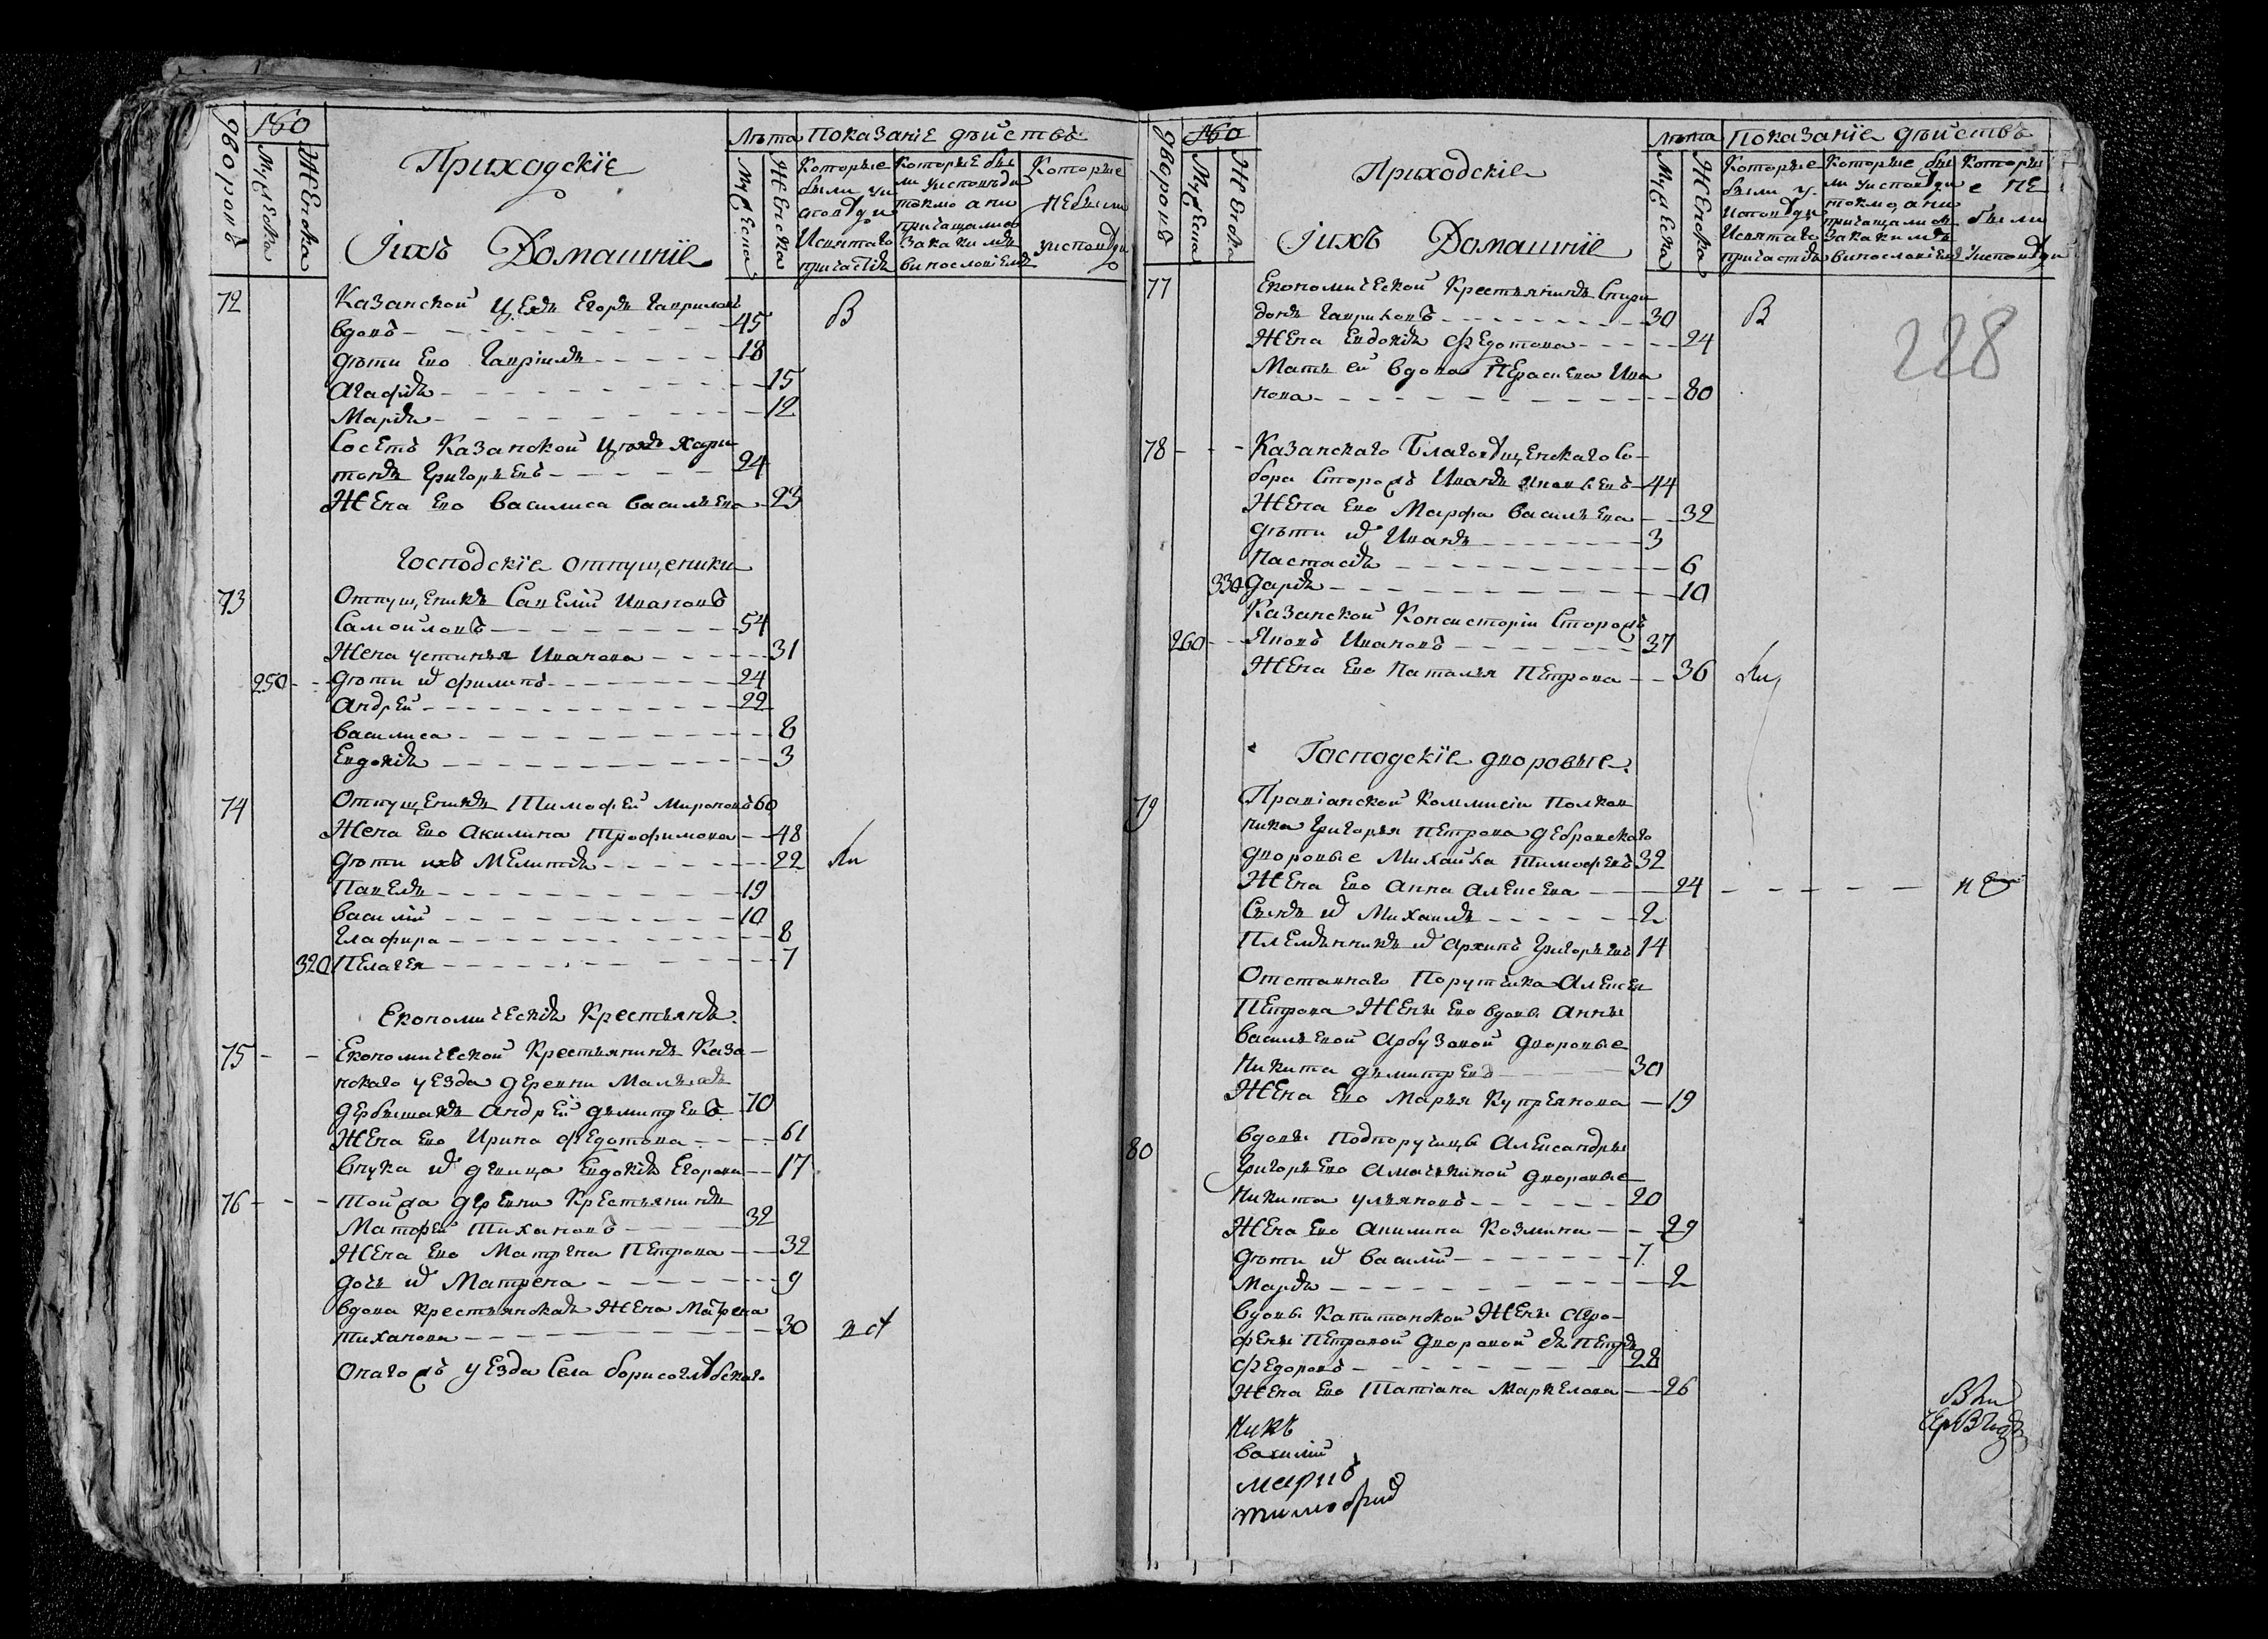 Число
дворовъ
Мужеска
Женска
Приходскїе
Iихъ Домашнїе
Лѣта
Мужеска
Женска
показанїе дѣйствъ
Которые
были уи
сповѣди
Исвятаго
причастїя
которые бы
ли уисповѣди
токмо ани
причащались
закакимъ
винословїемъ
Которые
небыли
уисповѣди
72
Казанской цехъ Егоръ Гавриловъ
вдовъ 45 В
дѣти Ево Гаврiилъ 18
Агафiя 15
Марiя 12
Состъ Казанской цехъ Хари
тонъ Григорьевъ 24
Жена Ево Василиса Васильева 23
Господскїе отпущеники
73 Отпущеникъ Савелiй Ивановъ
Самойловъ 54
Жена Устинья Иванова 31
250 Дѣти их Филипъ 24
Андрей 22
Василиса 8
Евдокiя 3
74 Отпущеникъ Тимофей Мироновъ 60
Жена Ево Акилина Трофимова 48
Дѣти ихъ Мелитiя 22
Павелъ 19
Василiй 10
Глафира 8
320 Пелагея 7
Економическiя Крестьяня
75 Економической Крестьянинъ Каза
нскаго уезда деревни Малыхъ
дербышакъ Андрей Дмитревъ 70
Жена Ево Ирина Федотова 61
Внука их девица Евдокiя Егорова 17
76 Тойжа деревни Крестьянинъ
Матфей Тихановъ 32
Жена Ево Матрена Петрова 32
Дочь их Матрена 9
Вдова крестьянская Жена Матрена
Тиханова 30
Онагожъ уезда Села борисоглѣбскаго
Число
дворовъ
Мужеска
Женска
Приходскїе
Iихъ Домашнїе
Лѣта
Мужеска
Женска
Показанїе дѣйствъ
Которые
были у
исповѣди
Исвятаго
причастїя
Которые бы
ли уисповѣди
токмо, ани
причащались
закакимъ
винословїемъ
Которы
е не
были
уисповѣди
228
77 Економической Крестьянинъ Спири
донъ Гавриловъ 30 В
Жена Евдокiя Федотова 24
Мать ей вдова Герасиева Ива
нова 80
78 Казанскаго Благовѣщенскаго Со
бора Сторожъ Иванъ Ивановъ 44
Жена Ево Марфа Васильева 32
Дѣти их Иванъ 3
Настасiя 6
330 Дарiя 10
Казанской Консисторiи Сторожъ
260 Яковъ Ивановъ 37
Жена Ево Наталья Петрова 36
Гасподскїе дворовые
79 Правiанской Коммисiи Полков
ника Григорья Петрова Дебранскаго
дворовые Михайла Тимофевъ 32
Жена Ево Анна Алексева 24 не
Сынъ их Михаилъ 2
Племянникъ их Архипъ Григорьевъ 14
Отставнаго Порутчика Алексея
Петрова Жены Ево вдовы Анны
Васильевой Арбузовой дворовые
Никита Дмитревъ 30
Жена Ево Марья Купреянова 19
80 Вдовы Подпоручицы Александры
Григорьево Аматкиной дворовые
Никита Ульяновъ 20
Жена Ево Акилина Козмина 29
Дѣти их Василiй 7
Марiя 2
Вдовы Капитанской Жены Агро
фены Петровой дворовой ея Петръ
Федоровъ 28
Жена Ево Татiана Маркелова 26